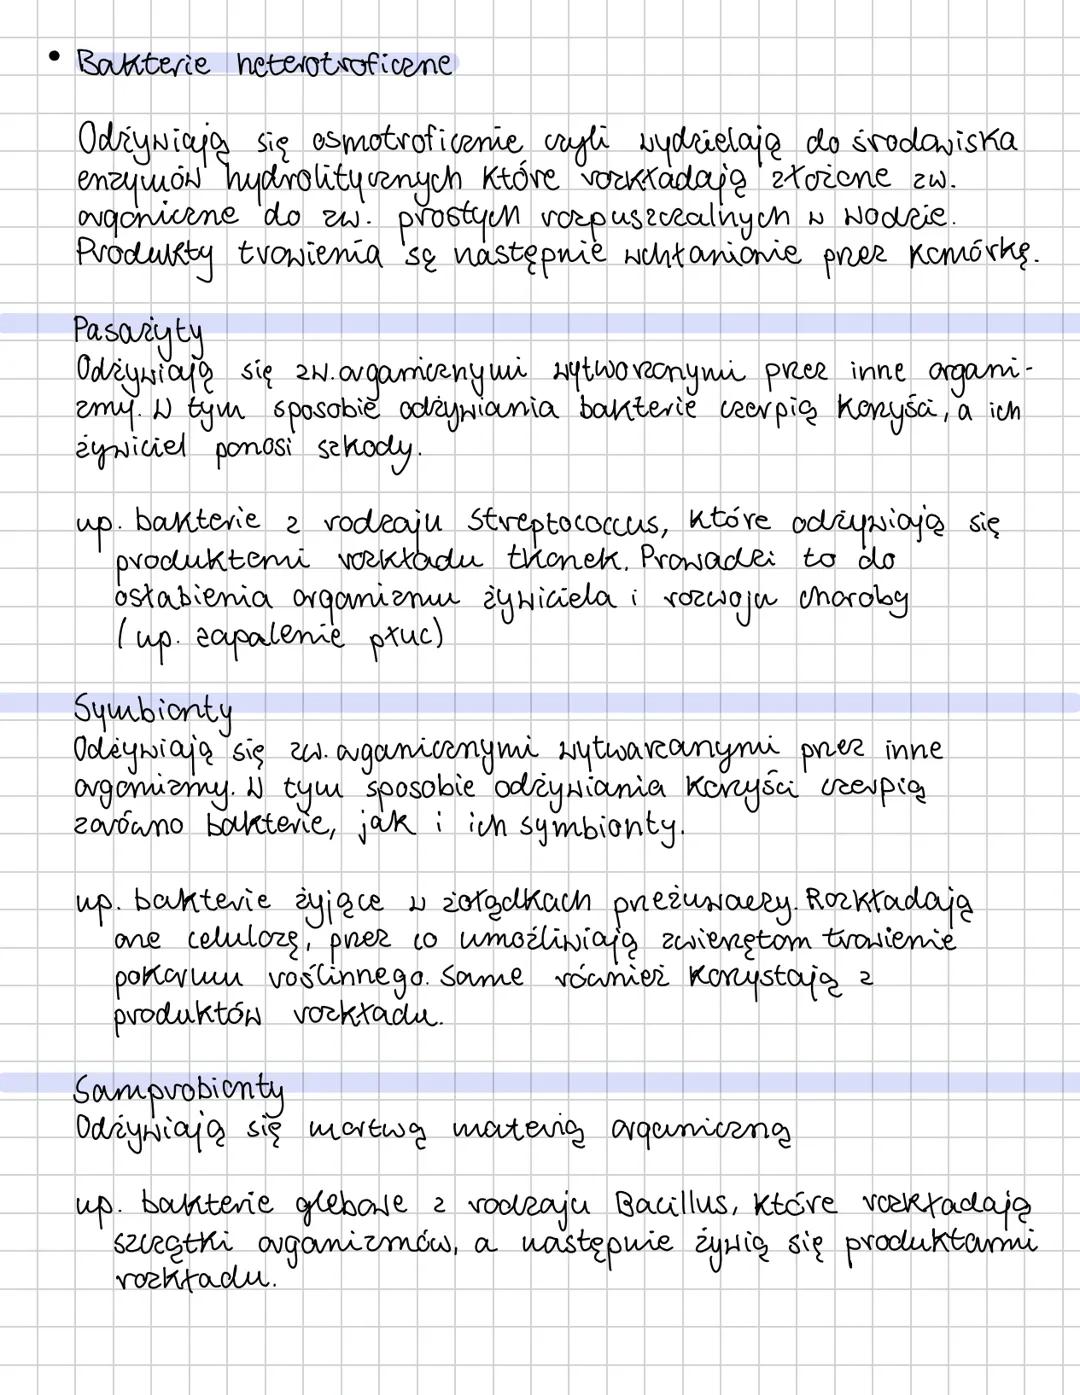 • Bakterie heterotroficzne
Odżywiają się osmotroficznie czyli wydzielają do środowiska
enzymów hydrolitycznych które rozkładają złożone zw.
organiczne do zw. prostych rozpuszczalnych w wodzie.
Produkty trawienia są następnie wchłanianie przez komórkę.
Pasażyty
Odżywiają się zw. organicznymi wytworzonymi przez inne organi-
zmy. W tym sposobie odżywiania bakterie czerpią korzyści, a ich
żywiciel ponosi szkody.
np. bakterie z rodzaju Streptococcus, które odżywiają się
produktami rozkładu tkanek. Prowadzi to do
osłabienia organizmu żywiciela i rozwoju choroby
(np. zapalenie płuc)
Symbionty
Odżywiają się zw. organicznymi wytwarzanymi przez inne
organizmy. W tym sposobie odżywiania korzyści czerpią
zarówno bakterie, jak i ich symbionty.
np. bakterie żyjące w żołądkach przeżuwaczy. Rozkładają
one celulozę, przez co umożliwiają zwierzętom trawienie
pokarmu roślinnego. Same również korzystają z
produktów rozkładu.
Samprobionty
Odżywiają się martwą materią organiczną
np. bakterie glebowe z rodzaju Bacillus, które rozkładają
szczątki organizmów, a następnie żywią się produktami
rozkładu.